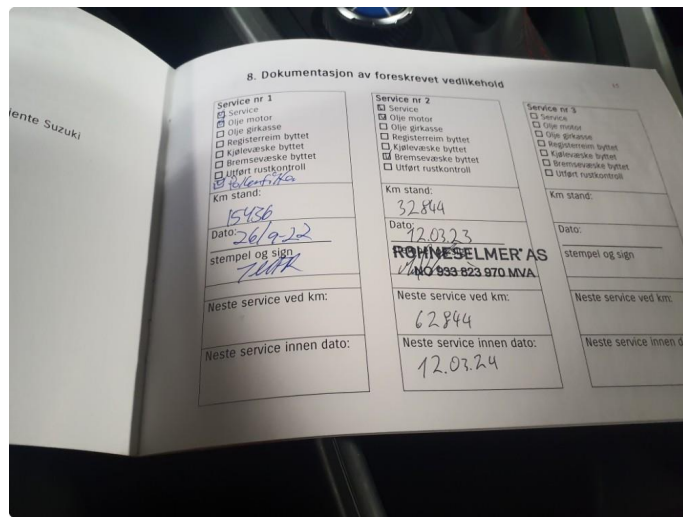 iente Suzuki
8. Dokumentasjon av foreskrevet vedlikehold
Service nr 1
Service
Olje motor
Olje girkasse
Registerreim byttet
Kjølevæske byttet
Bremsevæske byttet
Utført rustkontroll
Km stand:
15436
Dato: 26/9-22
stempel og sign
Neste service ved km:
Neste service innen dato:
Service nr 2
Service
Olje motor
Olje girkasse
Registerreim byttet
Kjølevæske byttet
Bremsevæske byttet
Utført rustkontroll
Km stand:
32844
Dato: 12.03.23
RØHNESELMER AS
NO 933 823 970 MVA
Neste service ved km:
62844
Neste service innen dato:
12.03.24
Service nr 3
Service
Olje motor
Olje girkasse
Registerreim byttet
Kjølevæske byttet
Bremsevæske byttet
Utført rustkontroll
Km stand:
Dato:
stempel og sign
Neste service ved km:
Neste service innen d